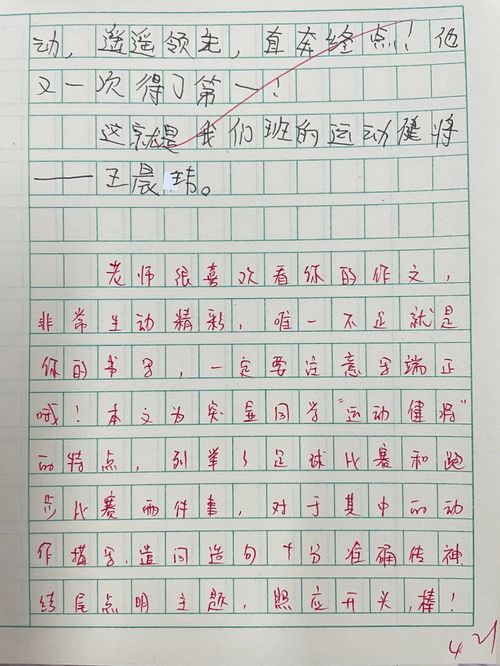 动，遥遥领先，直奔终点！他
又一次得了第一！
这就是我们班的运动健将
——王晨玮。
老师很喜欢看你的作文，
非常生动精彩，唯一不足就是
你的书写，一定要注意字端正
哦！本文为突显同学“运动健将”
的特点，列举了足球比赛和跑
步比赛两件事，对于其中的动
作描写，造词造句十分准确传神
结尾点明主题，照应开头，棒！